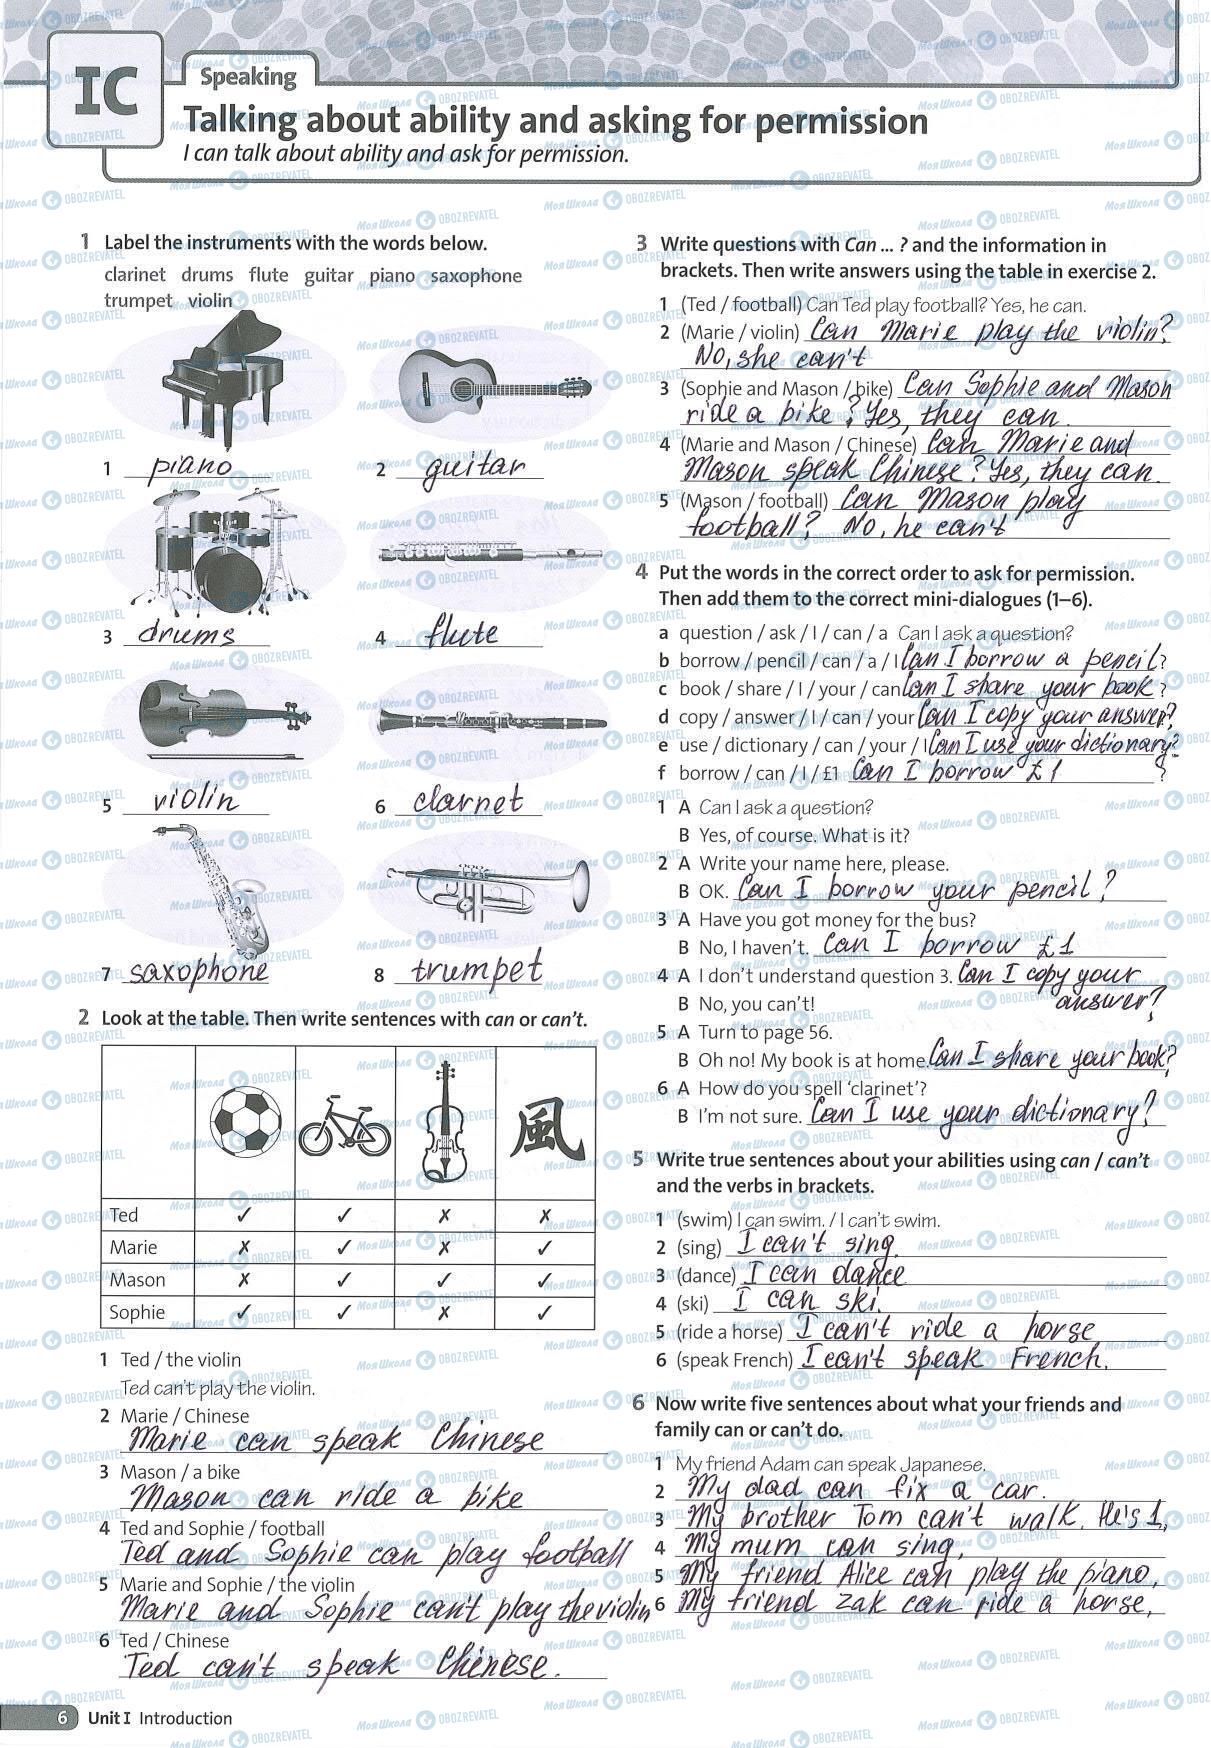 IC
Speaking
Talking about ability and asking for permission
I can talk about ability and ask for permission.
1 Label the instruments with the words below.
clarinet drums flute guitar piano saxophone
trumpet violin
1 piano
2 guitar
3 drums
4 flute
5 violin
6 clarnet
7 saxophone
8 trumpet
2 Look at the table. Then write sentences with can or can't.
風
Ted ✓ ✓ ✗ ✗
Marie ✗ ✓ ✗ ✓
Mason ✗ ✓ ✓ ✓
Sophie ✓ ✓ ✗ ✓
1 Ted / the violin
Ted can't play the violin.
2 Marie / Chinese
Marie can speak Chinese
3 Mason / a bike
Mason can ride a bike
4 Ted and Sophie / football
Ted and Sophie can play football
5 Marie and Sophie / the violin
Marie and Sophie can't play the violin
6 Ted / Chinese
Ted can't speak Chinese.
3 Write questions with Can ... ? and the information in
brackets. Then write answers using the table in exercise 2.
1 (Ted / football) Can Ted play football? Yes, he can.
2 (Marie / violin) Can Marie play the violin?
No, she can't
3 (Sophie and Mason / bike) Can Sophie and Mason
ride a bike? Yes, they can.
4 (Marie and Mason / Chinese) Can Marie and
Mason speak Chinese? Yes, they can.
5 (Mason / football) Can Mason play
football? No, he can't
4 Put the words in the correct order to ask for permission.
Then add them to the correct mini-dialogues (1–6).
a question / ask / I / can / a Can I ask a question?
b borrow / pencil / can / a / I Can I borrow a pencil?
c book / share / I / your / can Can I share your book?
d copy / answer / I / can / your Can I copy your answer?
e use / dictionary / can / your / I Can I use your dictionary?
f borrow / can / I / £1 Can I borrow £1?
1 A Can I ask a question?
B Yes, of course. What is it?
2 A Write your name here, please.
B OK. Can I borrow your pencil?
3 A Have you got money for the bus?
B No, I haven't. Can I borrow £1
4 A I don't understand question 3. Can I copy your
B No, you can't! answer?
5 A Turn to page 56.
B Oh no! My book is at home. Can I share your book?
6 A How do you spell 'clarinet'?
B I'm not sure. Can I use your dictionary?
5 Write true sentences about your abilities using can / can't
and the verbs in brackets.
1 (swim) I can swim. / I can't swim.
2 (sing) I can't sing.
3 (dance) I can dance
4 (ski) I can ski.
5 (ride a horse) I can't ride a horse
6 (speak French) I can't speak French.
6 Now write five sentences about what your friends and
family can or can't do.
1 My friend Adam can speak Japanese.
2 My dad can fix a car.
3 My brother Tom can't walk. He's 1.
4 My mum can sing.
5 My friend Alice can play the piano.
6 My friend Zak can ride a horse.
6 Unit I Introduction
Моя Школа OBOZREVATEL